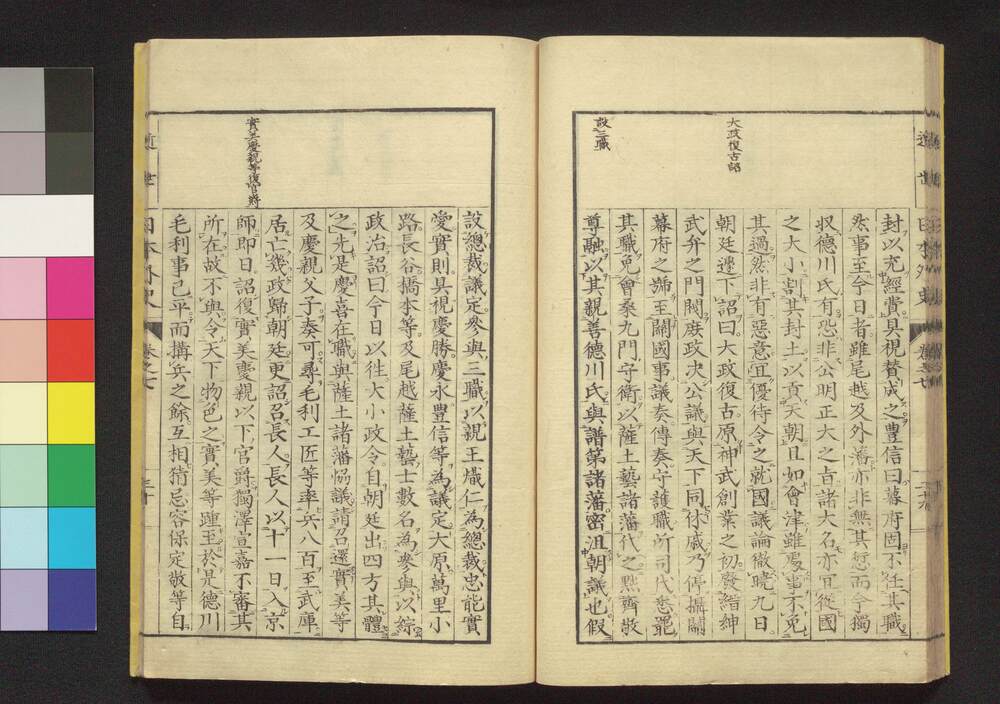 大政復古詔
設三職
封以充經費具視贊成之豊信曰幕府固不任其職
然事至今日者雖尾越及外藩亦非無其愆而令獨
収德川氏有恐非公明正大之旨諸大名亦宜從國
之大小割其封土以貢天朝且如會津雖處事不免
其過然非有惡意宜優待令之就國議論徹曉九日
朝廷遽下詔曰大政復古原神武創業之初廢縉紳
武弁之門閥庶政決公議與天下同休戚乃停攝關
幕府之號至關國事議奏傳奏守護職所司代悉罷
其職免會桑九門守衛以薩土藝諸藩代之黙齊敬
尊融以其親善德川氏與譜第諸藩密沮朝議也假
近世日本外史
卷之七
實美慶親等復官爵
設總裁議定參與三職以親王熾仁為總裁忠能實
愛實則具視慶勝慶永豊信等為議定大原萬里小
路長谷橋本等及尾越薩土藝士數名為參與以綜
政治詔曰今日以往大小政令自朝廷出四方其體
之先是慶喜在職與薩土諸藩協議請召還實美等
及慶親父子奏可尋毛利工匠等率兵八百至武庫
居亡幾政歸朝廷更詔召長人長人以十一日入京
師即日詔復實美慶親以下官爵獨澤宣嘉不審其
所在故不與令天下物色之實美等踵至於是德川
毛利事已平而搆兵之餘互相猜忌容保定敬等自
近世日本外史
卷之七
三十